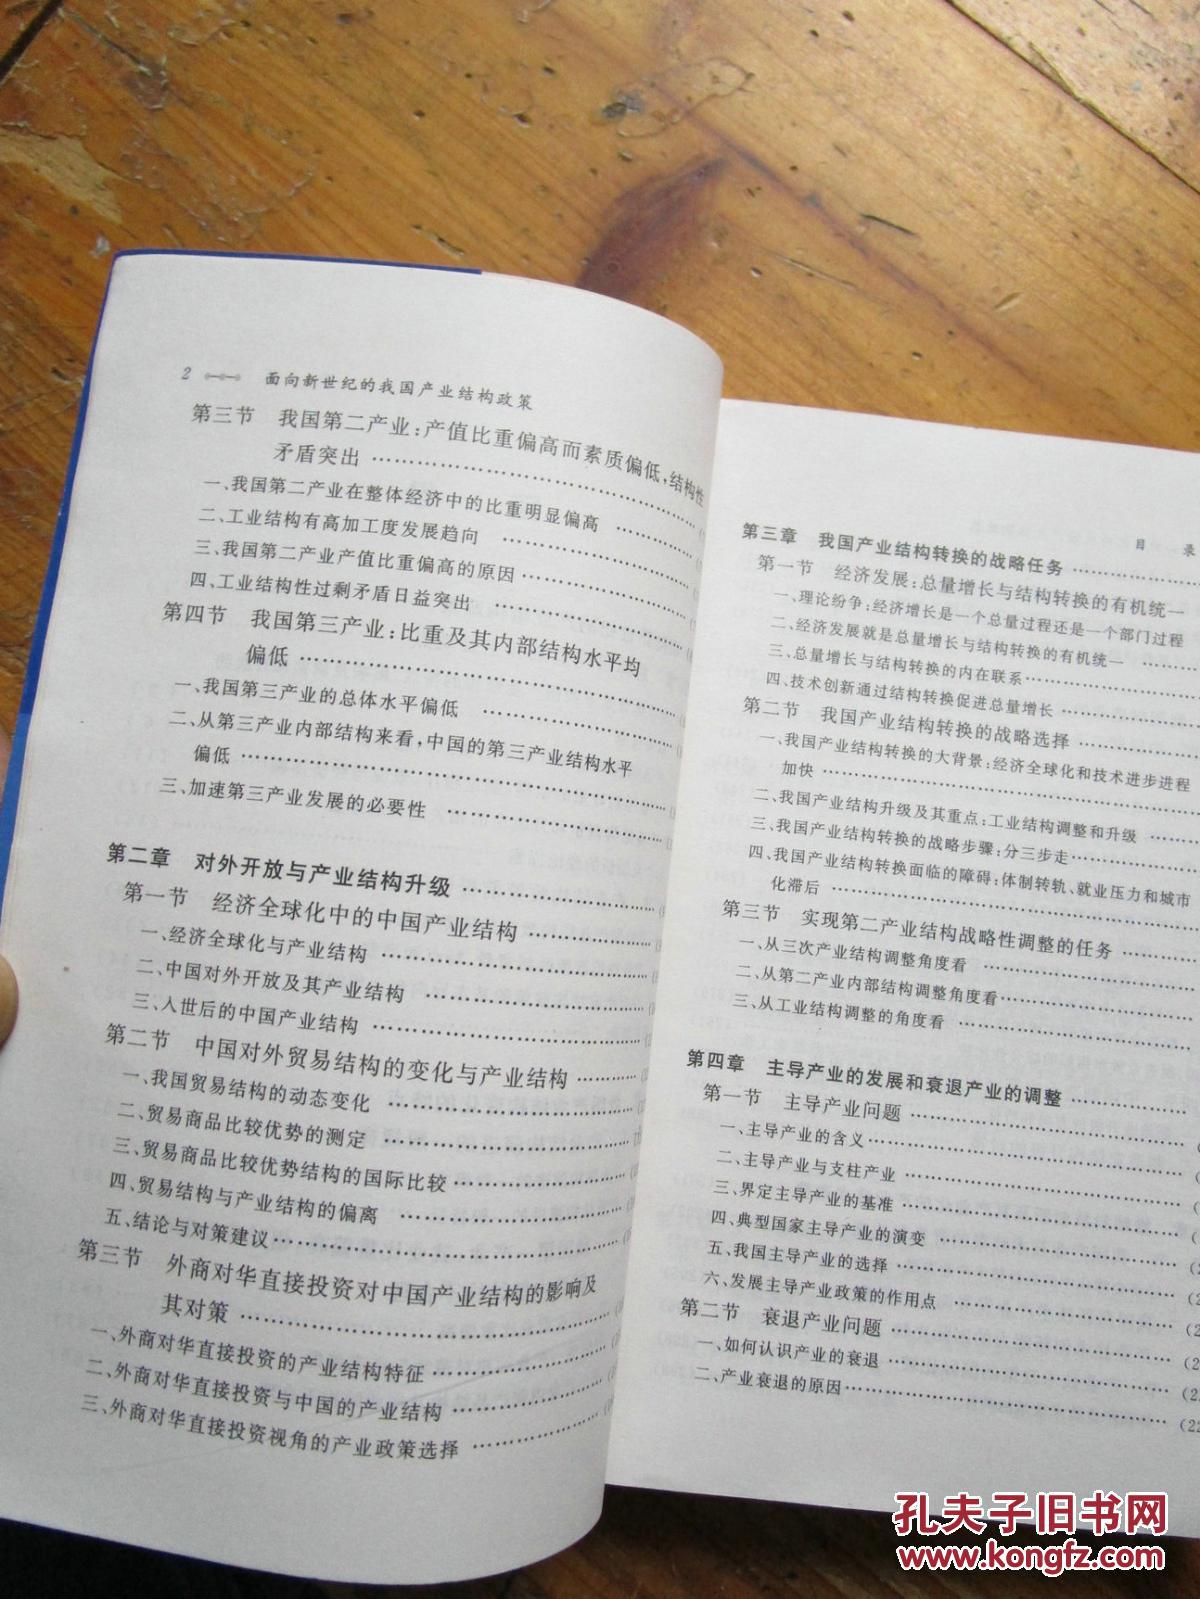 2 面向新世纪的我国产业结构政策
第三节 我国第二产业:产值比重偏高而素质偏低,结构性
矛盾突出
一、我国第二产业在整体经济中的比重明显偏高
二、工业结构有高加工度发展趋向
三、我国第二产业产值比重偏高的原因
四、工业结构性过剩矛盾日益突出
第四节 我国第三产业:比重及其内部结构水平均
偏低
一、我国第三产业的总体水平偏低
二、从第三产业内部结构来看,中国的第三产业结构水平
偏低
三、加速第三产业发展的必要性
第二章 对外开放与产业结构升级
第一节 经济全球化中的中国产业结构
一、经济全球化与产业结构
二、中国对外开放及其产业结构
三、入世后的中国产业结构
第二节 中国对外贸易结构的变化与产业结构
一、我国贸易结构的动态变化
二、贸易商品比较优势的测定
三、贸易商品比较优势结构的国际比较
四、贸易结构与产业结构的偏离
五、结论与对策建议
第三节 外商对华直接投资对中国产业结构的影响及
其对策
一、外商对华直接投资的产业结构特征
二、外商对华直接投资与中国的产业结构
三、外商对华直接投资视角的产业政策选择
目 录
第三章 我国产业结构转换的战略任务
第一节 经济发展:总量增长与结构转换的有机统一
一、理论纷争:经济增长是一个总量过程还是一个部门过程
二、经济发展就是总量增长与结构转换的有机统一
三、总量增长与结构转换的内在联系
四、技术创新通过结构转换促进总量增长
第二节 我国产业结构转换的战略选择
一、我国产业结构转换的大背景:经济全球化和技术进步进程
加快
二、我国产业结构升级及其重点:工业结构调整和升级
三、我国产业结构转换的战略步骤:分三步走
四、我国产业结构转换面临的障碍:体制转轨、就业压力和城市
化滞后
第三节 实现第二产业结构战略性调整的任务
一、从三次产业结构调整角度看
二、从第二产业内部结构调整角度看
三、从工业结构调整的角度看
第四章 主导产业的发展和衰退产业的调整
第一节 主导产业问题
一、主导产业的含义
二、主导产业与支柱产业
三、界定主导产业的基准
四、典型国家主导产业的演变
五、我国主导产业的选择
六、发展主导产业政策的作用点
第二节 衰退产业问题
一、如何认识产业的衰退
二、产业衰退的原因
孔夫子旧书网
www.kongfz.com